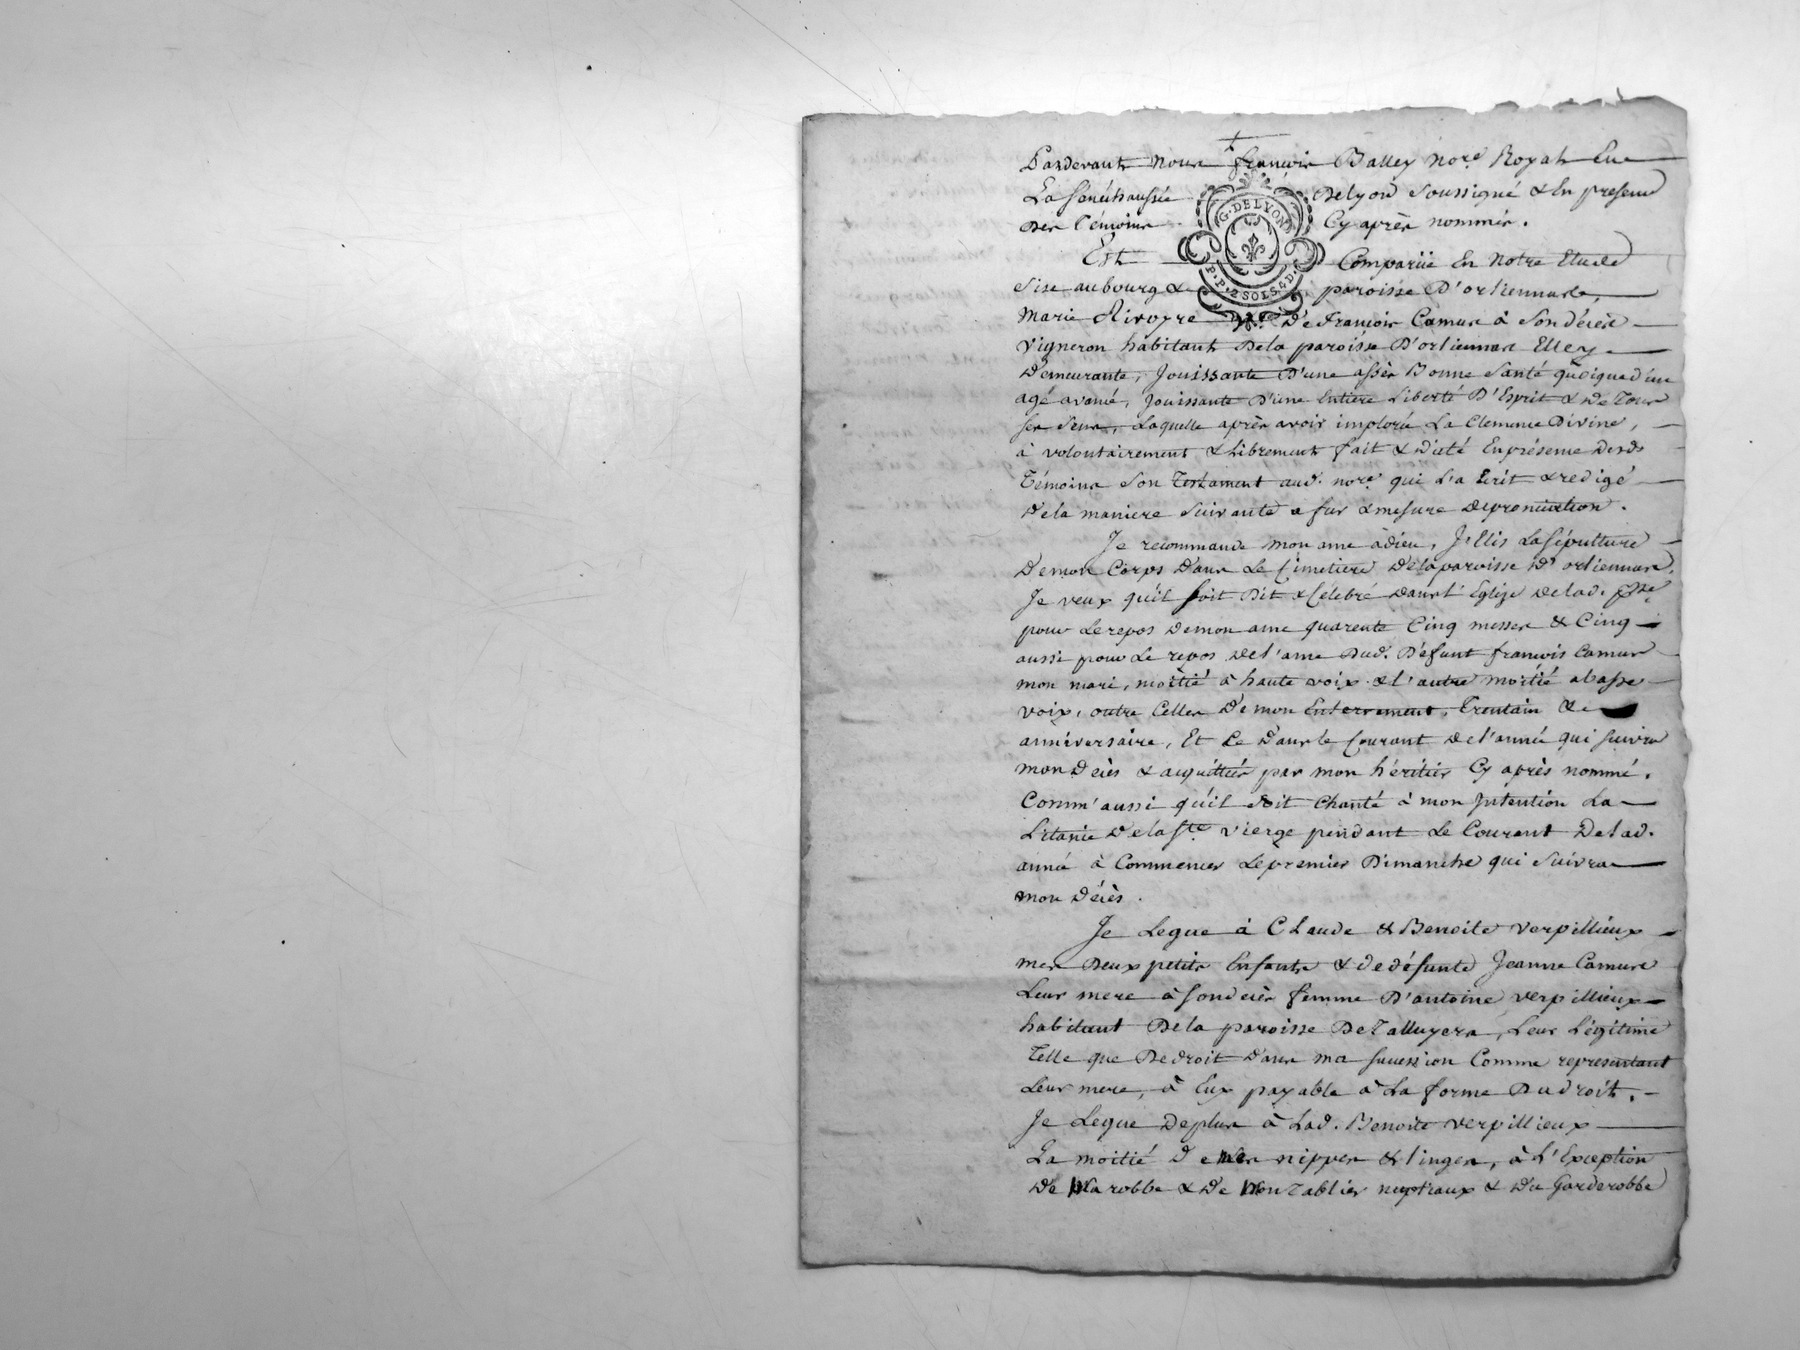 Pardevant nous françois Balley nore. Royal En
La sénéchaussée Delyon soussigné & En presence
Des témoins Cy après nommés.
G. DELYON
P.P. 2 SOLS 4 D.
Est Comparüe En notre Etude
sise au bourg & paroisse D'orliennas,
Marie Rivoyre ve. De François Camus à son décès
vigneron habitant Dela paroisse D'orliennas Elley
Demeurante, Jouissante D'une assès Bonne santé quoique d'un
age avancé, Jouissante D'une Entiere Liberté D'Esprit & De Tous
ses sens, Laquelle après avoir imploré La Clemence Divine,
à volontairement & Librement fait & dicté En présence Desds
Témoins son Testament aud. nore. qui L'a Ecrit & redigé
Dela maniere suivante a fur & mesure de prononciation.
Je recommande mon ame à dieu, J'Elis La sépulture
De mon Corps Dans Le Cimetiere De la paroisse D'orliennas.
Je veux qu'il soit Dit & Célébré dans l'Eglise de lad. psse
pour Le repos De mon ame quarente Cinq messes & Cinq
aussi pour Le repos de l'ame Dud. Défunt françois Camus
mon mari, moitié à haute voix & l'autre moitié a basse
voix, outre Celles De mon Enterrement, Trentain &
anniversaire, Et Ce Dans le Courant de l'année qui suivra
mon Décès & acquittées par mon héritier Cy après nommé.
Comm'aussi qu'il soit Chanté à mon Intention La
Litanie De la Ste vierge pendant Le Courant De lad.
année à Commencer Le premier Dimanche qui suivra
mon Décès.
Je Legue à Claude & Benoite verpillieux
mes Deux petits Enfants & de défunte Jeanne Camus
Leur mere à son décès femme D'antoine verpillieux
habitant Dela paroisse De Talluyers, Leur Légitime
Telle que De droit Dans ma succession Comme representant
Leur mere, à Eux payable à La forme Du droit.
Je Legue De plus à Lad. Benoite verpillieux
La moitié De mes nippes & linges, à L'Exception
De Ma robbe & De Mon Tablier nuptiaux & Du Garderobbe